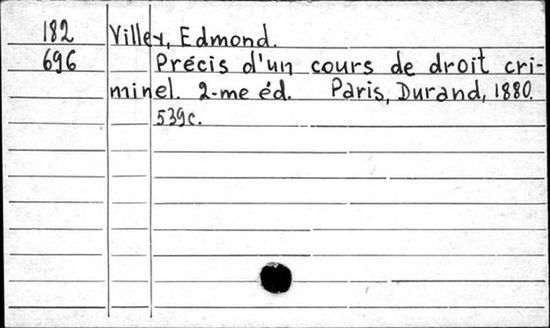 182 Villey, Edmond.
696 Précis d'un cours de droit cri-
minel. 2-me éd. Paris, Durand, 1880.
539c.